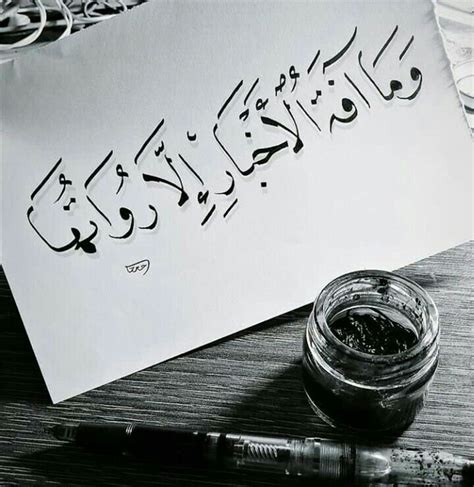 وَمَا آفَةُ الْأَخْبَارِ إِلَّا رُوَاتُهَا